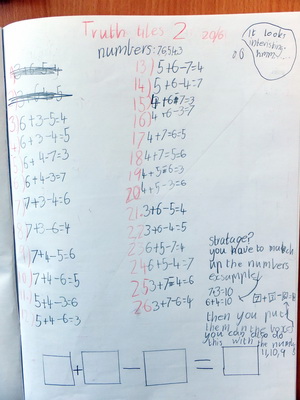 Truth tiles 2 20/6
numbers: 76543
It looks
interesting
hmmm...
3) 6+3-5=4
6+3-4=5
6+4-7=3
6+4-3=7
7+3-4=6
7+3-6=4
7+4-5=6
7+4-6=5
5+4-3=6
5+4-6=3
13) 5+6-7=4
14) 5+6-4=7
15) 4+6-7=3
16) 4+6-3=7
17 4+7-6=5
18 4+7-5=6
19 4+5-6=3
20 4+5-3=6
21. 3+6-5=4
22 3+6-4=5
23 6+5-7=4
24 6+5-4=7
25 3+7-6=4
26 3+7-6=4
stratage?
you have to match
up the numbers
example
7+3=10
6+4=10
then you put
them in the boxes
you can also do
this with the numbers
11,10,9 8
+ - =